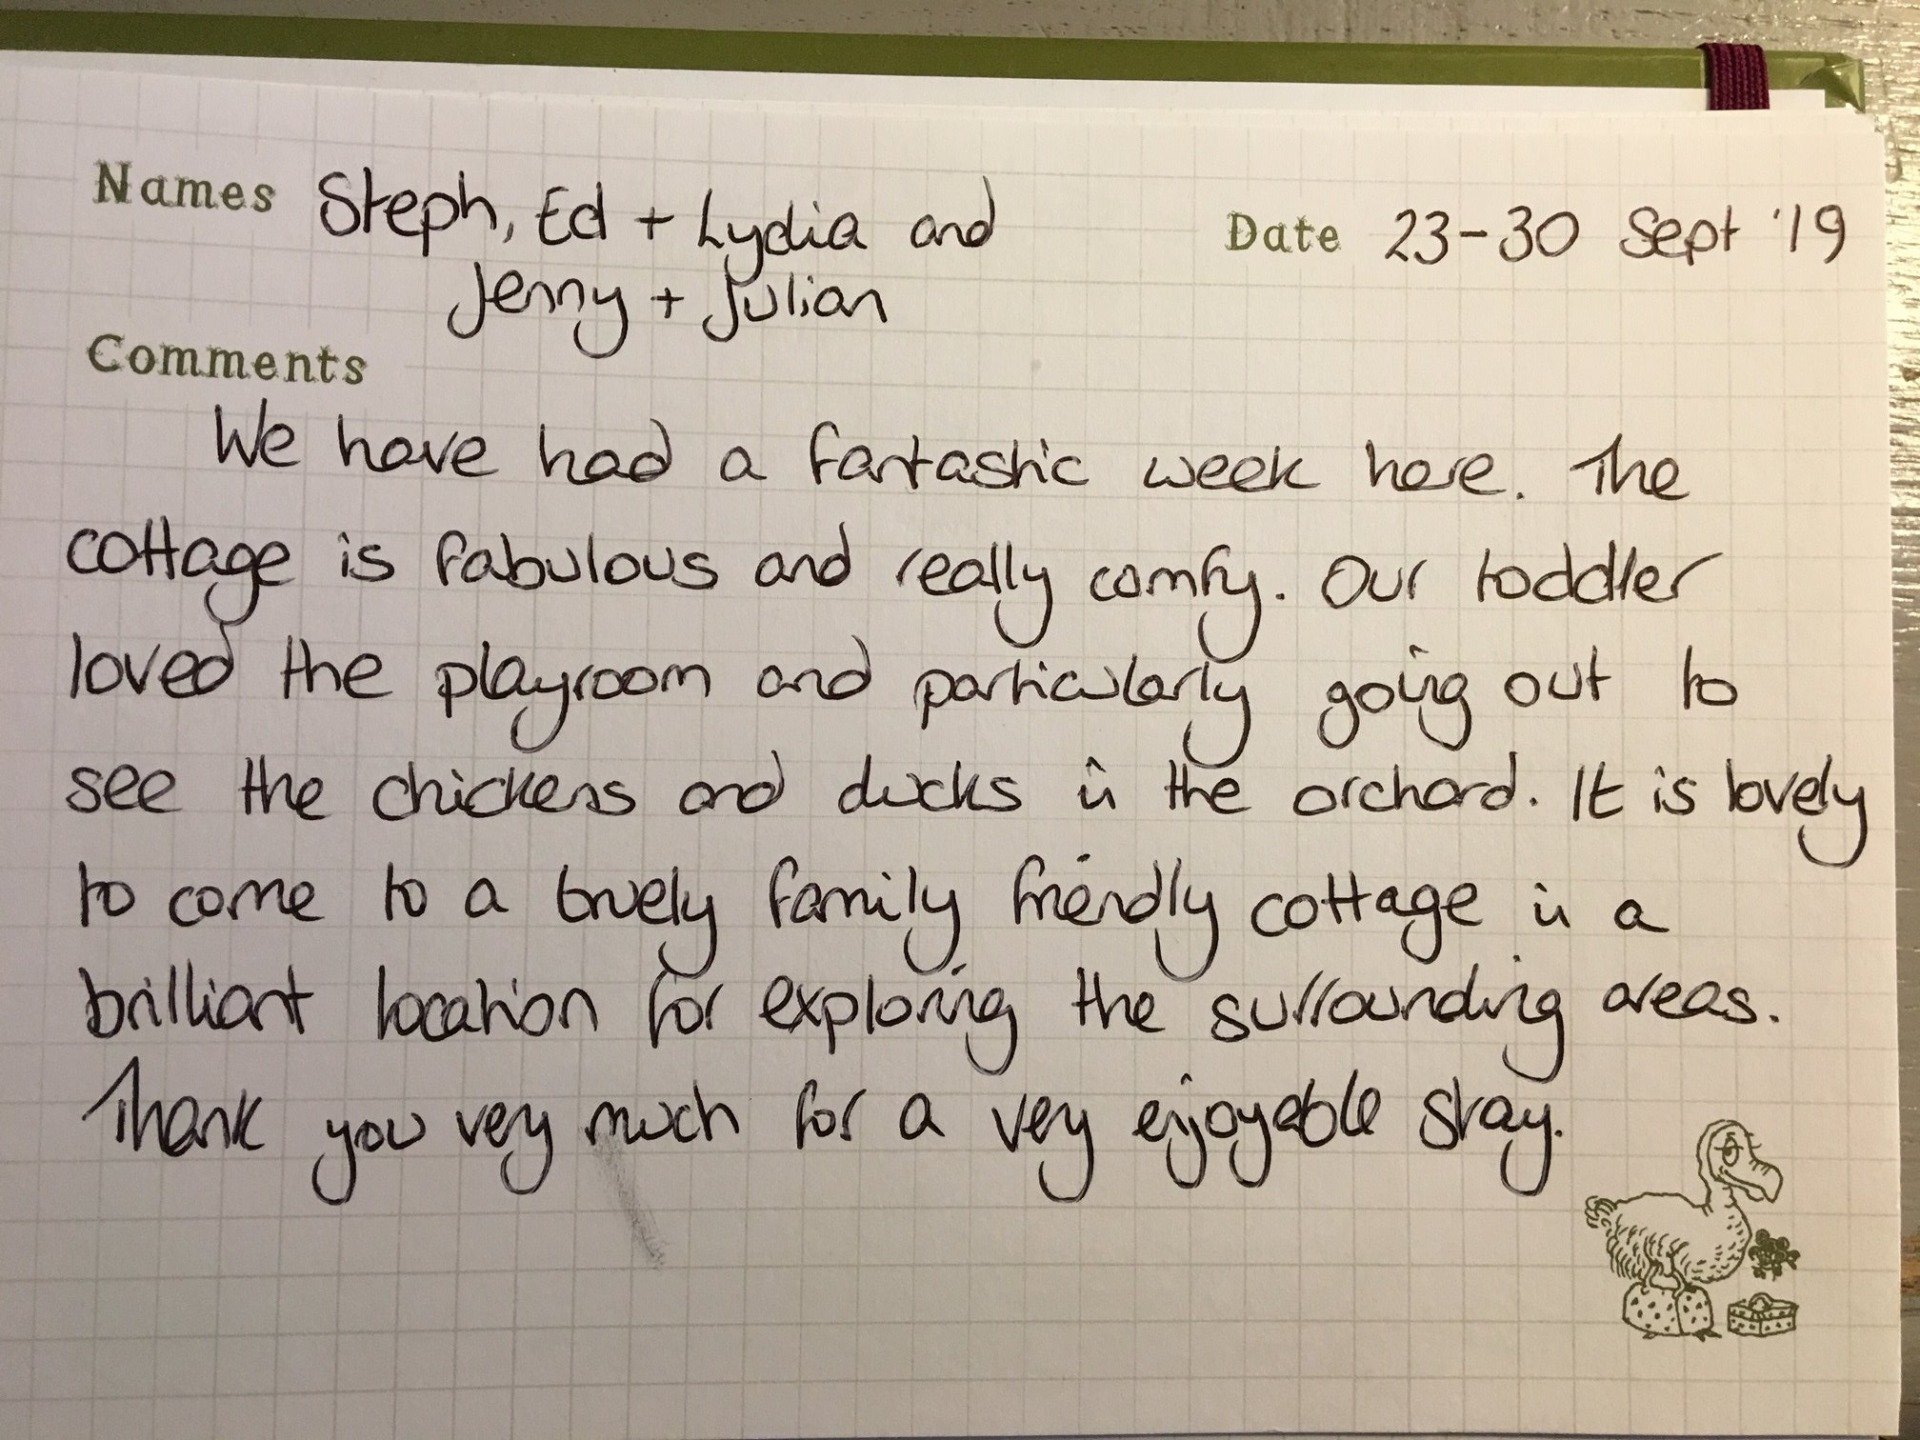 Names Steph, Ed + Lydia and
Jenny + Julian
Date 23-30 Sept '19
Comments
We have had a fantastic week here. The
cottage is fabulous and really comfy. Our toddler
loved the playroom and particularly going out to
see the chickens and ducks in the orchard. It is lovely
to come to a truely family friendly cottage in a
brilliant location for exploring the surrounding areas.
Thank you very much for a very enjoyable stay.